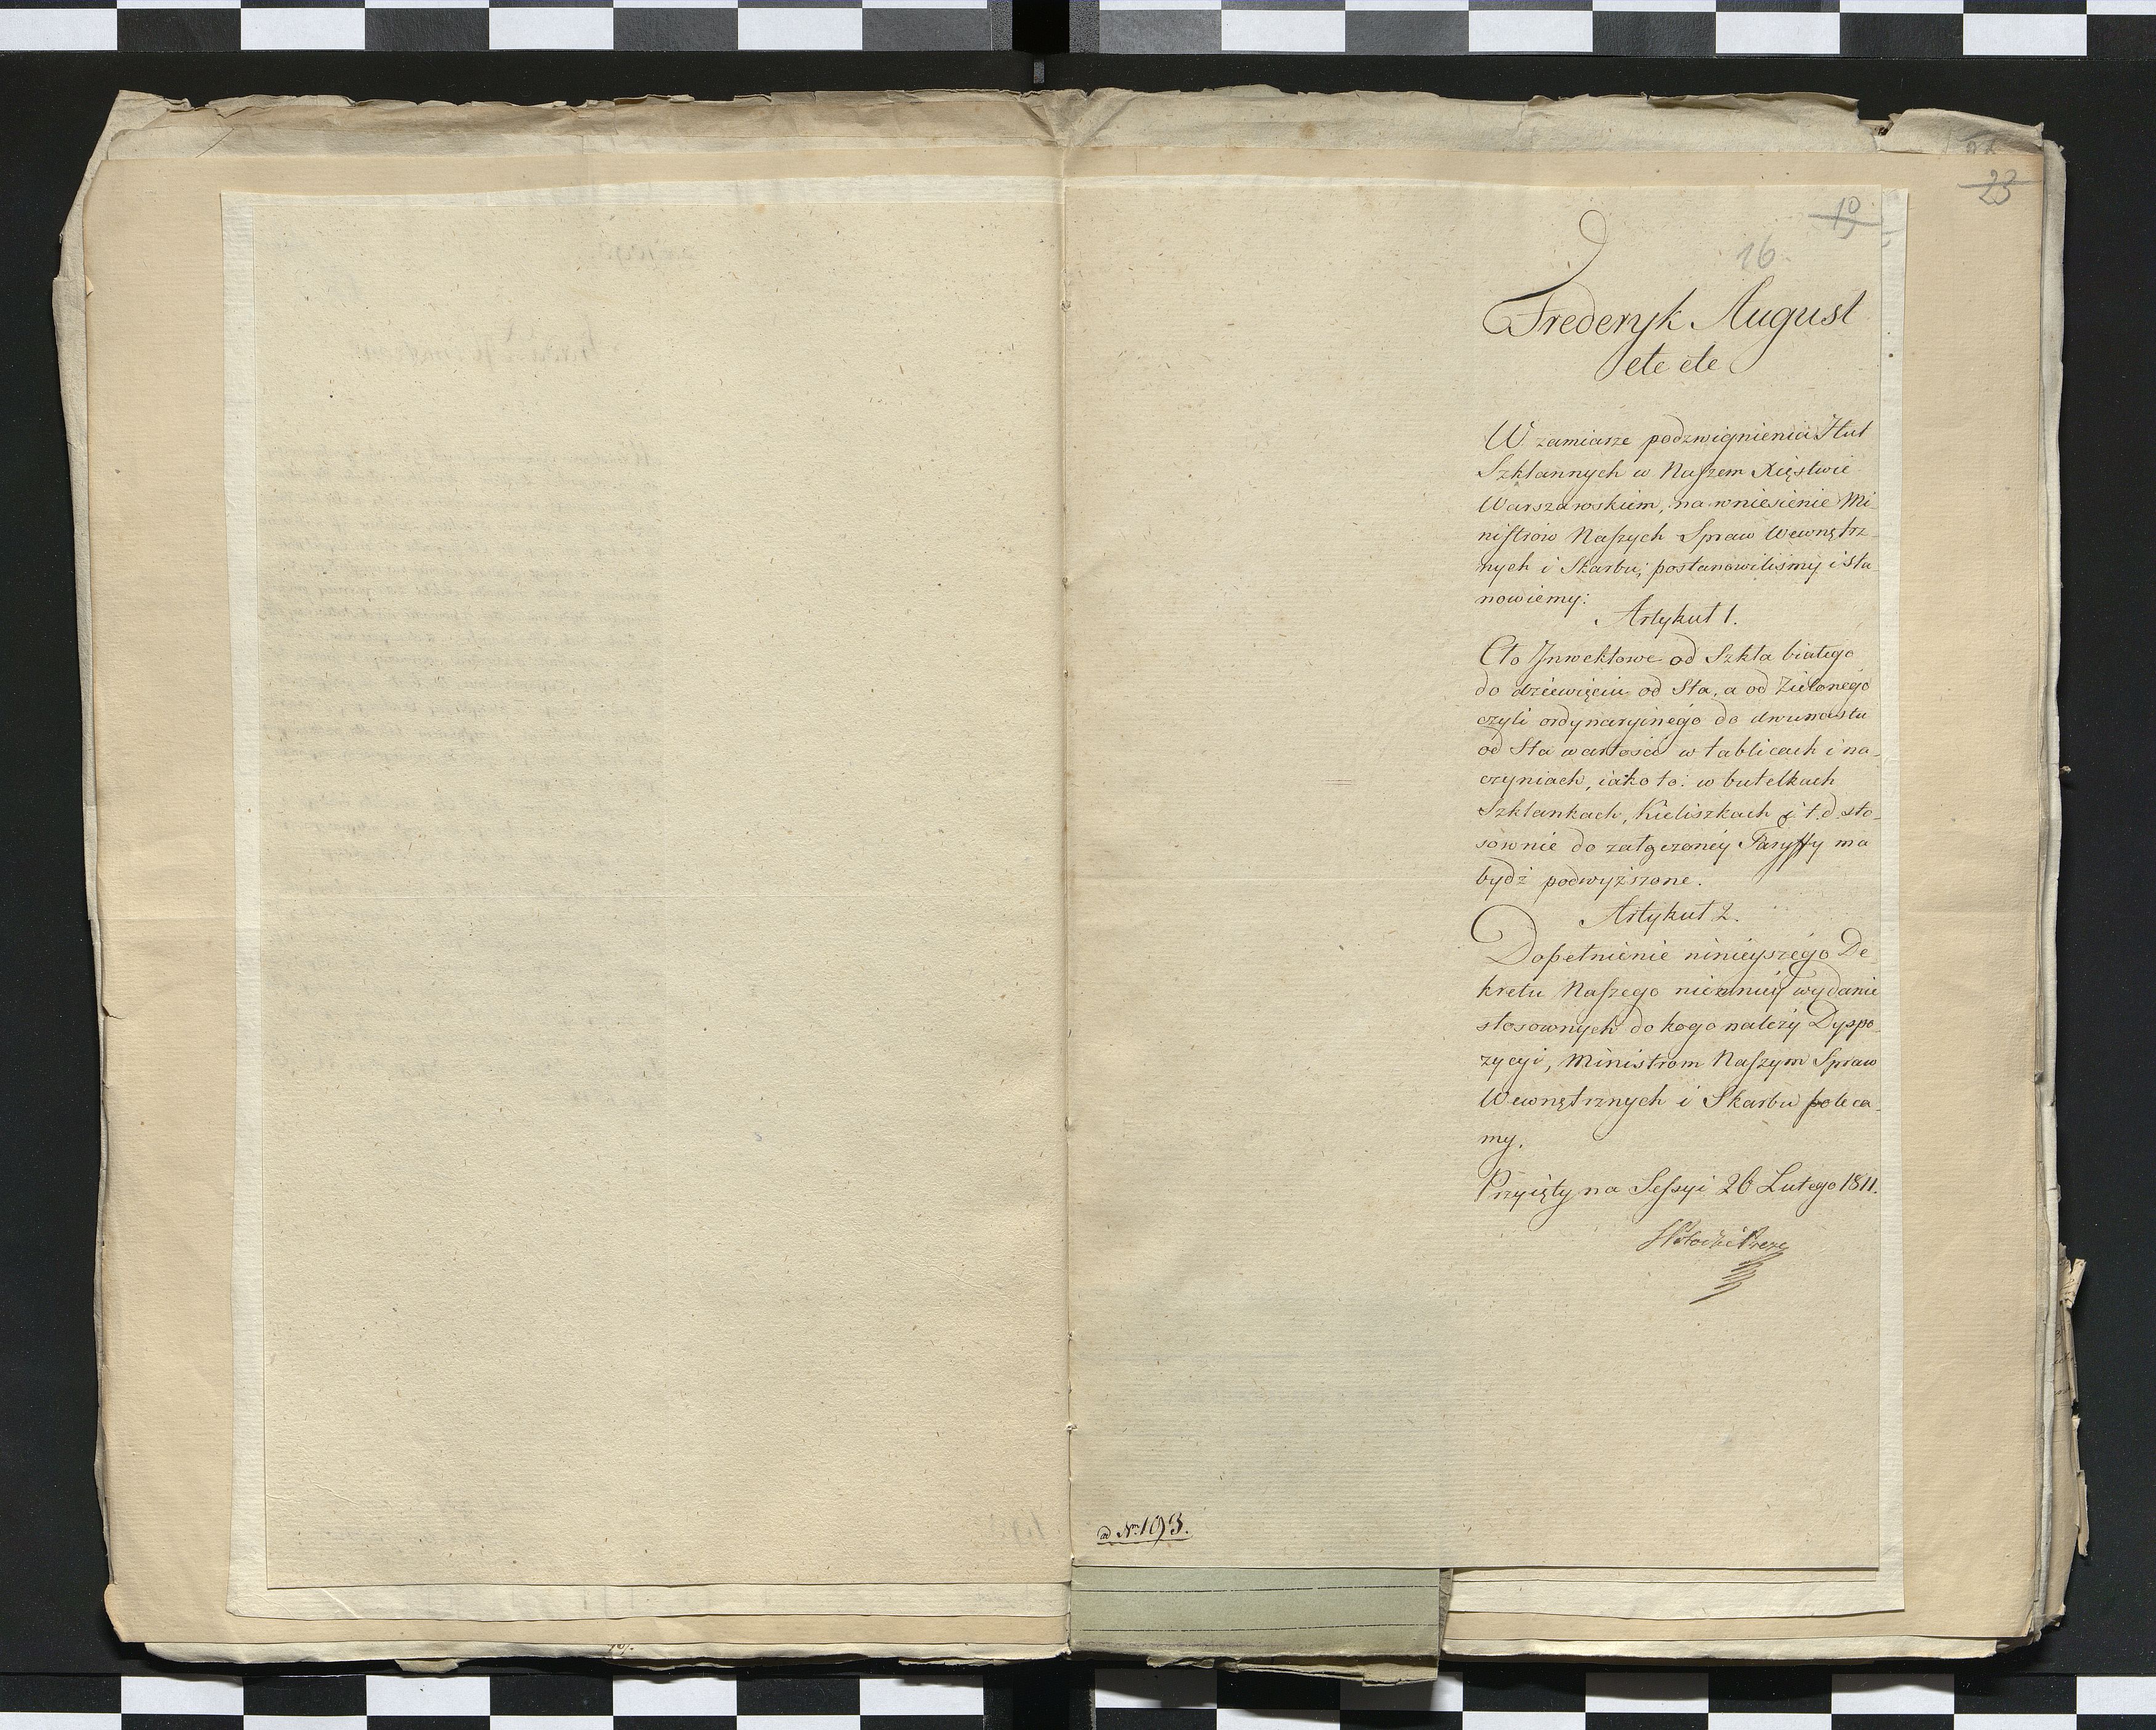 23
19
16.
Frederyk August
etc etc
W zamiarze podzwignienia Hut
Szklannych w Naszem Xięstwie
Warszawskiem, na wniesienie Mi-
nistrów Naszych Spraw Wewnętrz-
nych i Skarbu; postanowiliśmy i sta-
nowiemy:
Artykuł 1.
Cło Inwektowe od Szkła białego
do dziewięciu od Sta, a od Zielonego
czyli ordynaryinego do dwunastu
od Sta wartości w tablicach i na-
czyniach, iako to: w butelkach
Szklankach, Kieliszkach & t. d. sto-
sownie do załączoney Taryffy ma
bydź podwyższone.
Artykuł 2.
Dopełnienie ninieyszego De-
kretu Naszego niemniey wydanie
stosownych do kogo należy Dyspo-
zycyi, Ministrom Naszym Spraw
Wewnętrznych i Skarbu poleca-
my.
Przyięty na Sessyi 26 Lutego 1811.
ad Nr. 193.